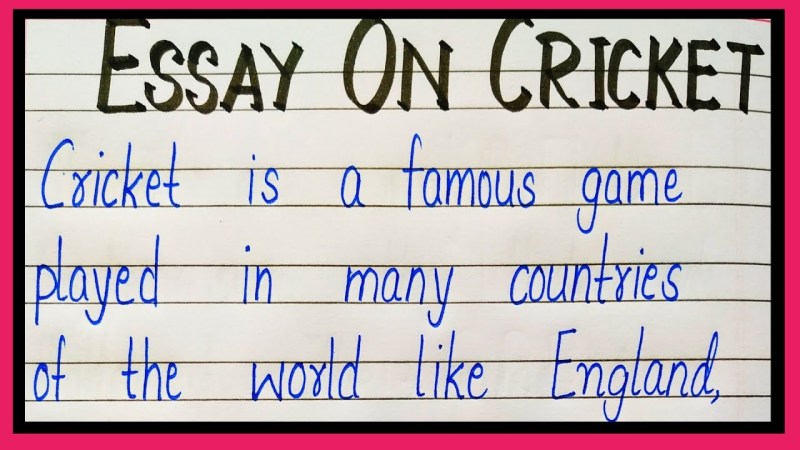 ESSAY ON CRICKET
Cricket is a famous game
played in many countries
of the world like England,